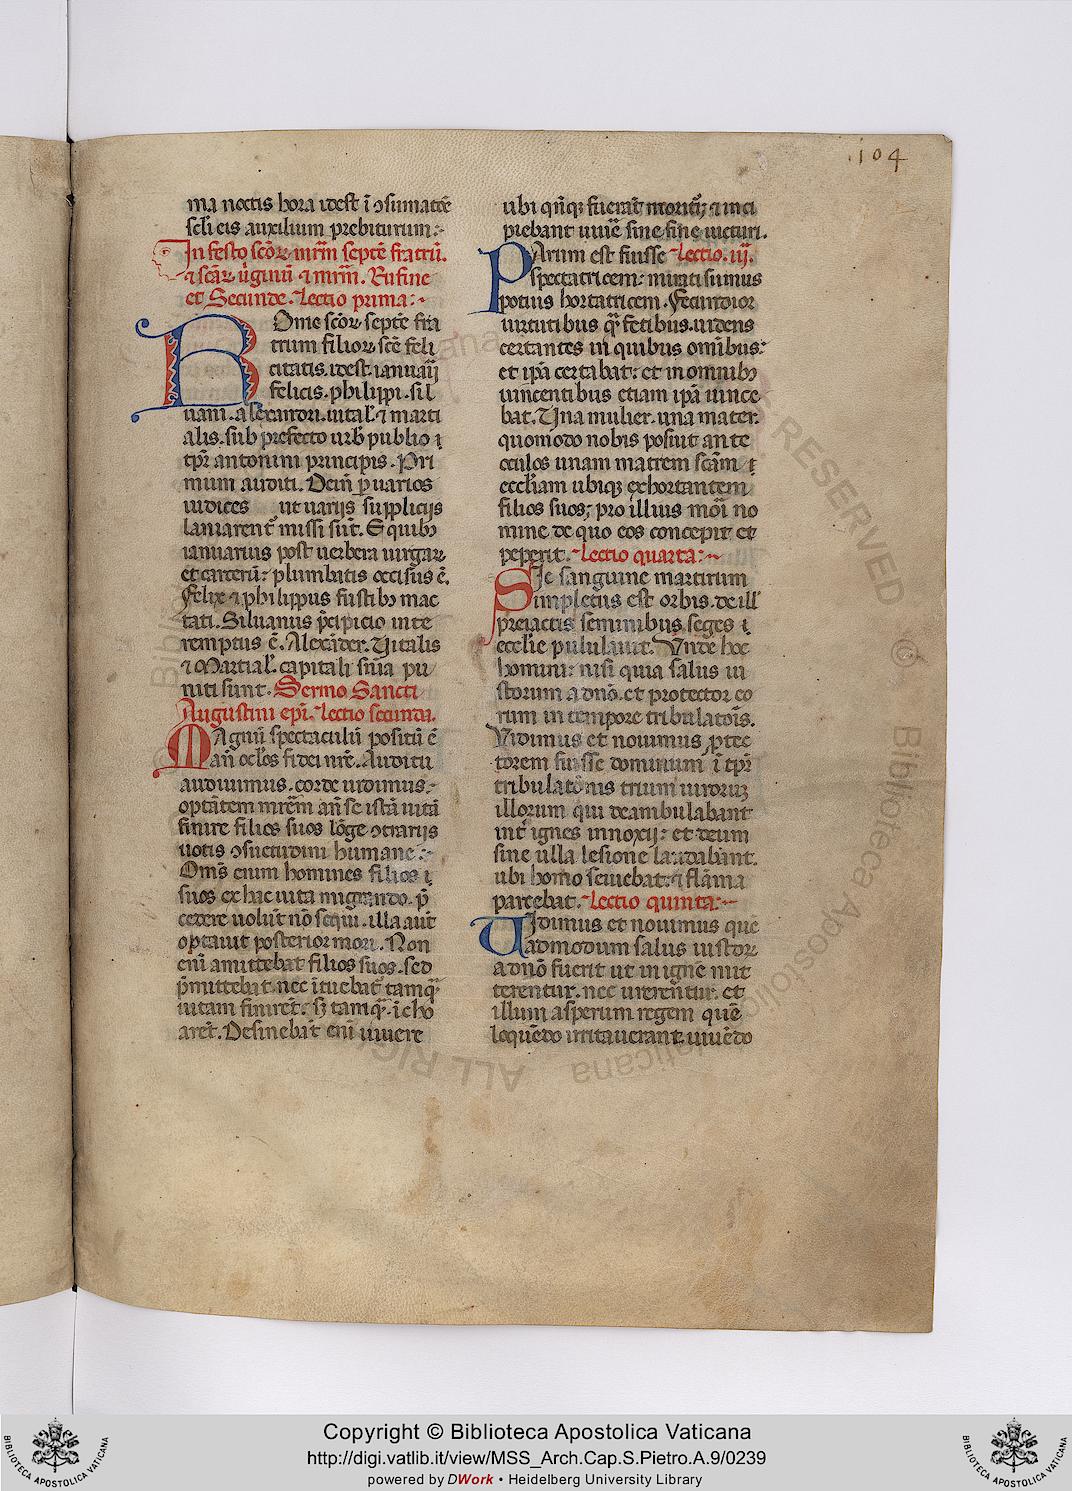 .104
ma noctis hora idest ī ɔsumatōe
scl̄i eis auxilium prebiturum:
In festo sc̄oꝝ mr̄m septē fratrū.
⁊ sc̄aꝝ u̇ginū ⁊ mr̄m. Rufine
et Secunde. Lectio prima:
Rome sc̄oꝝ septē fra
trum filioꝝ sc̄e feli
citatis. idest. ianuarij
felicis. philippi. sil
uani. alexandri. uital'. ⁊ marti
alis. sub prefecto urb' publio ī
tp̄r antonini principis. Pri
mum auditi. Dein̄ ꝑ uarios
iudices ut uarijs supplicijs
laniarent' missi sūt. E quibꝫ
ianuarius post uerbera uirgaꝝ
et carcerū: plumbatis occisus ē.
Felix ⁊ philippus fustibꝫ mac
tati. Siluanus p̄cipicio inte
remptus ē. Alexāder. Uitalis
⁊ Martial'. capitali sn̄ia pu
niti sunt. Sermo Sancti
Augustini ep̄i. Lectio secunda.
Magnū spectaculū positū ē
an̄ oc̄l'os fidei nr̄e. Auditu
audiuimus. corde uidimus:
optātem mr̄em an̄ se istā uitā
finire filios suos lōge ɔtrarijs
uotis ɔsuetudini humane:
Om̄s enim homines filios
suos ex hac uita migrando. p̄
cedere uolūt nō sequi. illa aut̄
optauit posterior mori. Non
eni᷎ amittebat filios suos. sed
p̄mittebat. nec ītuebat' tamq̄
uitam finirēt. sꝫ tamq̄. īcho
arēt. Desinebāt enī uiuere
ubi qn̄qꝫ fuerāt morituri ⁊ inci
piebant uiuē sine fine uicturi.
Parum est fuisse Lectio. iij.
spectatricem: mirati sumus
potius hortatricem. Fecundior
uirtutibus q̄ fetibus. uidens
certantes in quibus omībus:
et ip̄a certabat: et in omnibꝫ
uincentibus etiam ip̄a uince
bat. Una mulier. una mater.
quomodo nobis posuit ante
occulos unam matrem sc̄am
eccl̄iam ubiqꝫ exhortantem
filios suos; pro illius mori no
mine de quo eos concepit et
peperit. Lectio quarta:
Sic sanguine martirum
impletus est orbis. de ill'
preiactis seminibus seges
eccl̄ie pululauit. Unde hoc
homini: nisi quia salus iu
storum a dn̄o. et protector eo
rum in tempore tribulatōis.
Vidimus et nouimus ꝓtec
torem fuisse dominum ī tp̄r
tribulatōnis trium uiroruꝫ
illorum qui deambulabant
int' ignes innoxij: et deum
sine ulla lesione laudabant.
ubi homo seuiebat. ⁊ flāma
parcebat. Lectio quinta:
Uidimus et nouimus que
admodum salus iustoꝝ
a dn̄o fuerit ut in ignē mit
terentur. nec urerentur. et
illum asperum regem quē
loquēdo irritauerant. uiuēdo
Copyright © Biblioteca Apostolica Vaticana
http://digi.vatlib.it/view/MSS_Arch.Cap.S.Pietro.A.9/0239
powered by DWork • Heidelberg University Library
BIBLIOTECA APOSTOLICA VATICANA
BIBLIOTECA APOSTOLICA VATICANA